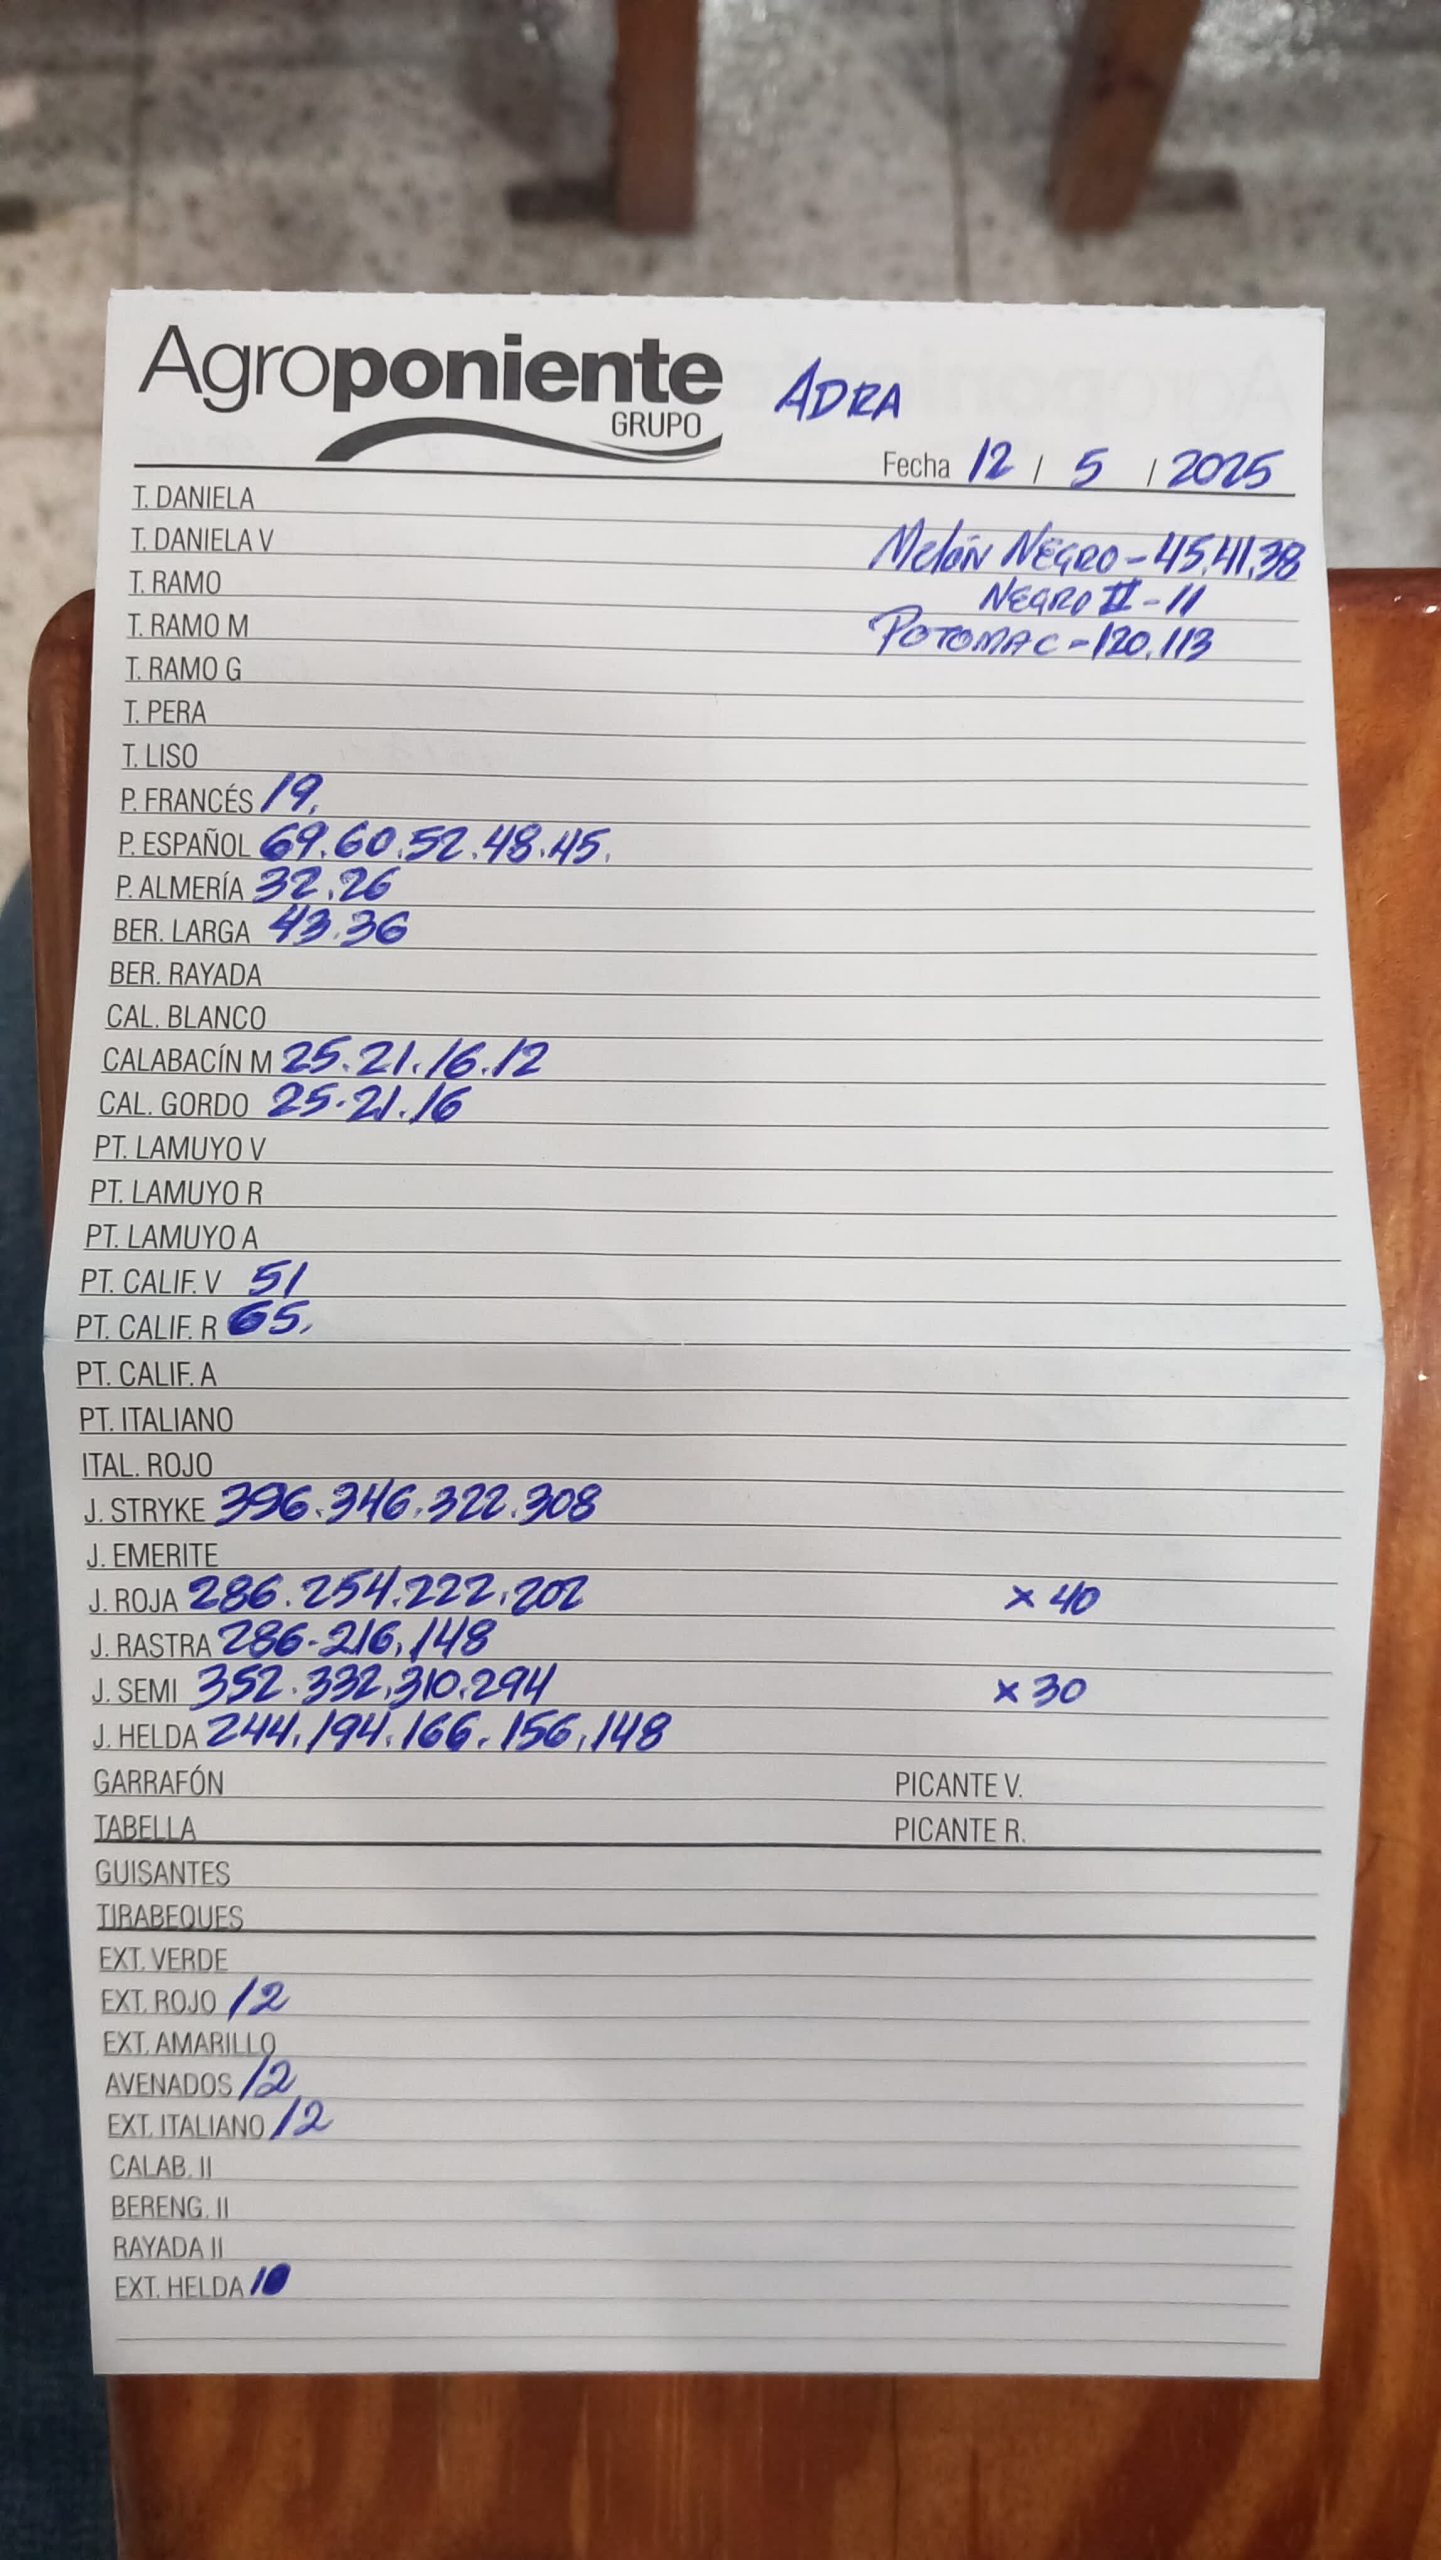 Agroponiente
GRUPO
ADRA
Fecha 12 / 5 / 2025
T. DANIELA
T. DANIELA V
Melón NEGRO - 45.41.38
T. RAMO
NEGRO II - 11
T. RAMO M
POTOMAC - 120.113
T. RAMO G
T. PERA
T. LISO
P. FRANCÉS 19.
P. ESPAÑOL 69.60.52.48.45.
P. ALMERÍA 32.26
BER. LARGA 43.36
BER. RAYADA
CAL. BLANCO
CALABACÍN M 25.21.16.12
CAL. GORDO 25.21.16
PT. LAMUYO V
PT. LAMUYO R
PT. LAMUYO A
PT. CALIF. V 51
PT. CALIF. R 65.
PT. CALIF. A
PT. ITALIANO
ITAL. ROJO
J. STRYKE 396.346.322.308
J. EMERITE
J. ROJA 286.254.222.202 x 40
J. RASTRA 286-216.148
J. SEMI 352.332.310.294 x 30
J. HELDA 244.194.166.156.148
GARRAFÓN PICANTE V.
TABELLA PICANTE R.
GUISANTES
TIRABEQUES
EXT. VERDE
EXT. ROJO 12
EXT. AMARILLO
AVENADOS 12
EXT. ITALIANO 12
CALAB. II
BERENG. II
RAYADA II
EXT. HELDA 10